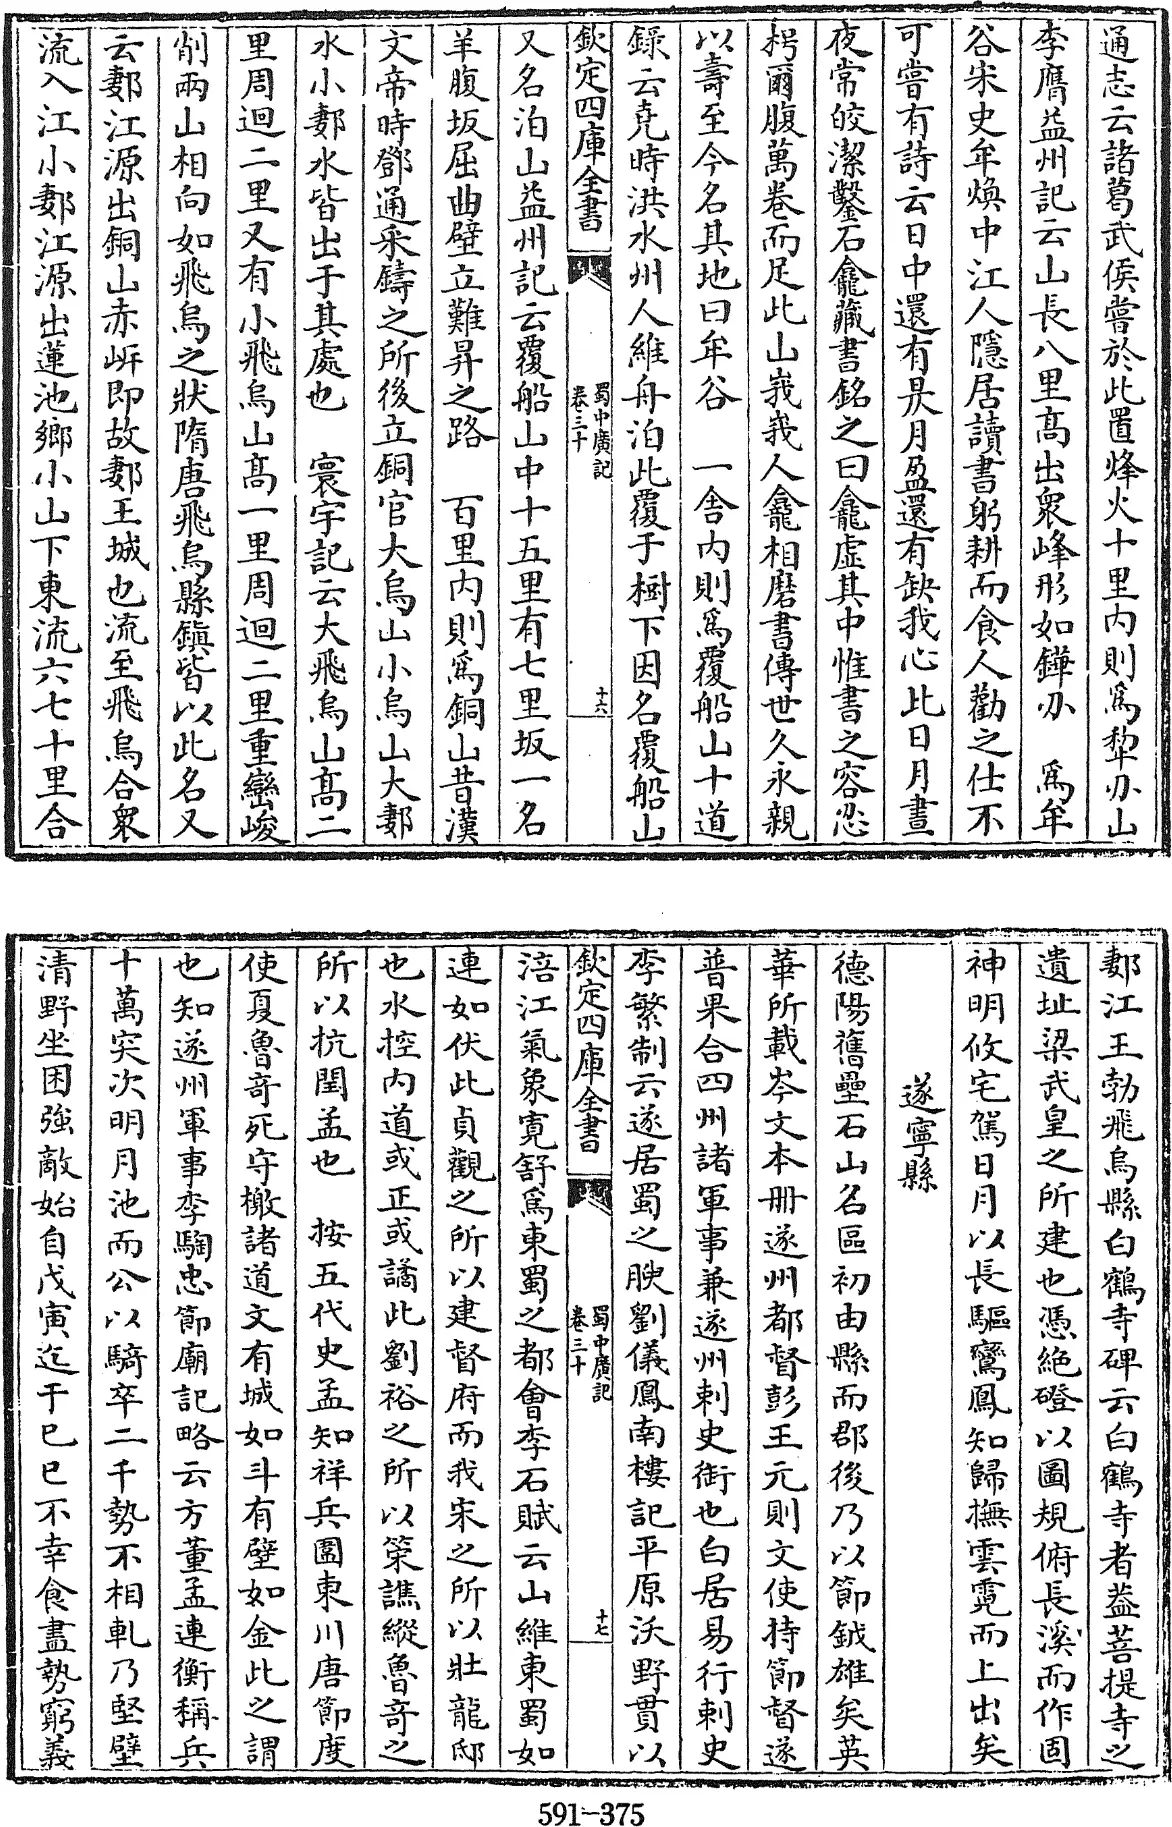 通志云諸葛武侯嘗於此置烽火十里内則為犂刅山
李膺益州記云山長八里髙出衆峰形如鏵刅　為牟
谷宋史牟煥中江人隱居讀書躬耕而食人勸之仕不
可嘗有詩云日中還有昃月盈還有缺我心此日月晝
夜常皎潔鑿石龕藏書銘之曰龕虚其中惟書之容忽
枵爾腹萬卷而足此山峩峩人龕相磨書傳世久永親
以壽至今名其地曰牟谷　一舎内則為覆船山十道
錄云堯時洪水州人維舟泊此覆于樹下因名覆船山
欽定四庫全書
蜀中廣記
卷三十
十六
又名泊山益州記云覆船山中十五里有七里坂一名
羊腹坂屈曲壁立難昇之路　百里内則為銅山昔漢
文帝時鄧通采鑄之所後立銅官大烏山小烏山大郪
水小郪水皆出于其處也　寰宇記云大飛烏山髙二
里周迴二里又有小飛烏山髙一里周迴二里重巒峻
削兩山相向如飛烏之狀隋唐飛烏縣鎮皆以此名又
云郪江源出銅山赤岍即故郪王城也流至飛烏合衆
流入江小郪江源出蓮池鄉小山下東流六七十里合
郪江王勃飛烏縣白鶴寺碑云白鶴寺者益菩提寺之
遺址梁武皇之所建也憑絶磴以圖規俯長溪而作固
神明攸宅駕日月以長驅鸞鳳知歸撫雲霓而上出矣
遂寧縣
德陽舊壘石山名區初由縣而郡後乃以節鉞雄矣英
華所載岑文本冊遂州都督彭王元則文使持節督遂
普果合四州諸軍事兼遂州刺史銜也白居易行刺史
李繁制云遂居蜀之腴劉儀鳳南樓記平原沃野貫以
欽定四庫全書
蜀中廣記
卷三十
十七
涪江氣象寛舒為東蜀之都會李石賦云山維東蜀如
連如伏此貞觀之所以建督府而我宋之所以壯龍邸
也水控内道或正或譎此劉裕之所以策譙縱魯竒之
所以抗閏孟也　按五代史孟知祥兵圍東川唐節度
使夏魯竒死守檄諸道文有城如斗有壁如金此之謂
也知遂州軍事李騊忠節廟記略云方董孟連衡稱兵
十萬突次明月池而公以騎卒二千勢不相軋乃堅壁
清野坐困強敵始自戊寅迄于巳巳不幸食盡勢窮義
591-375